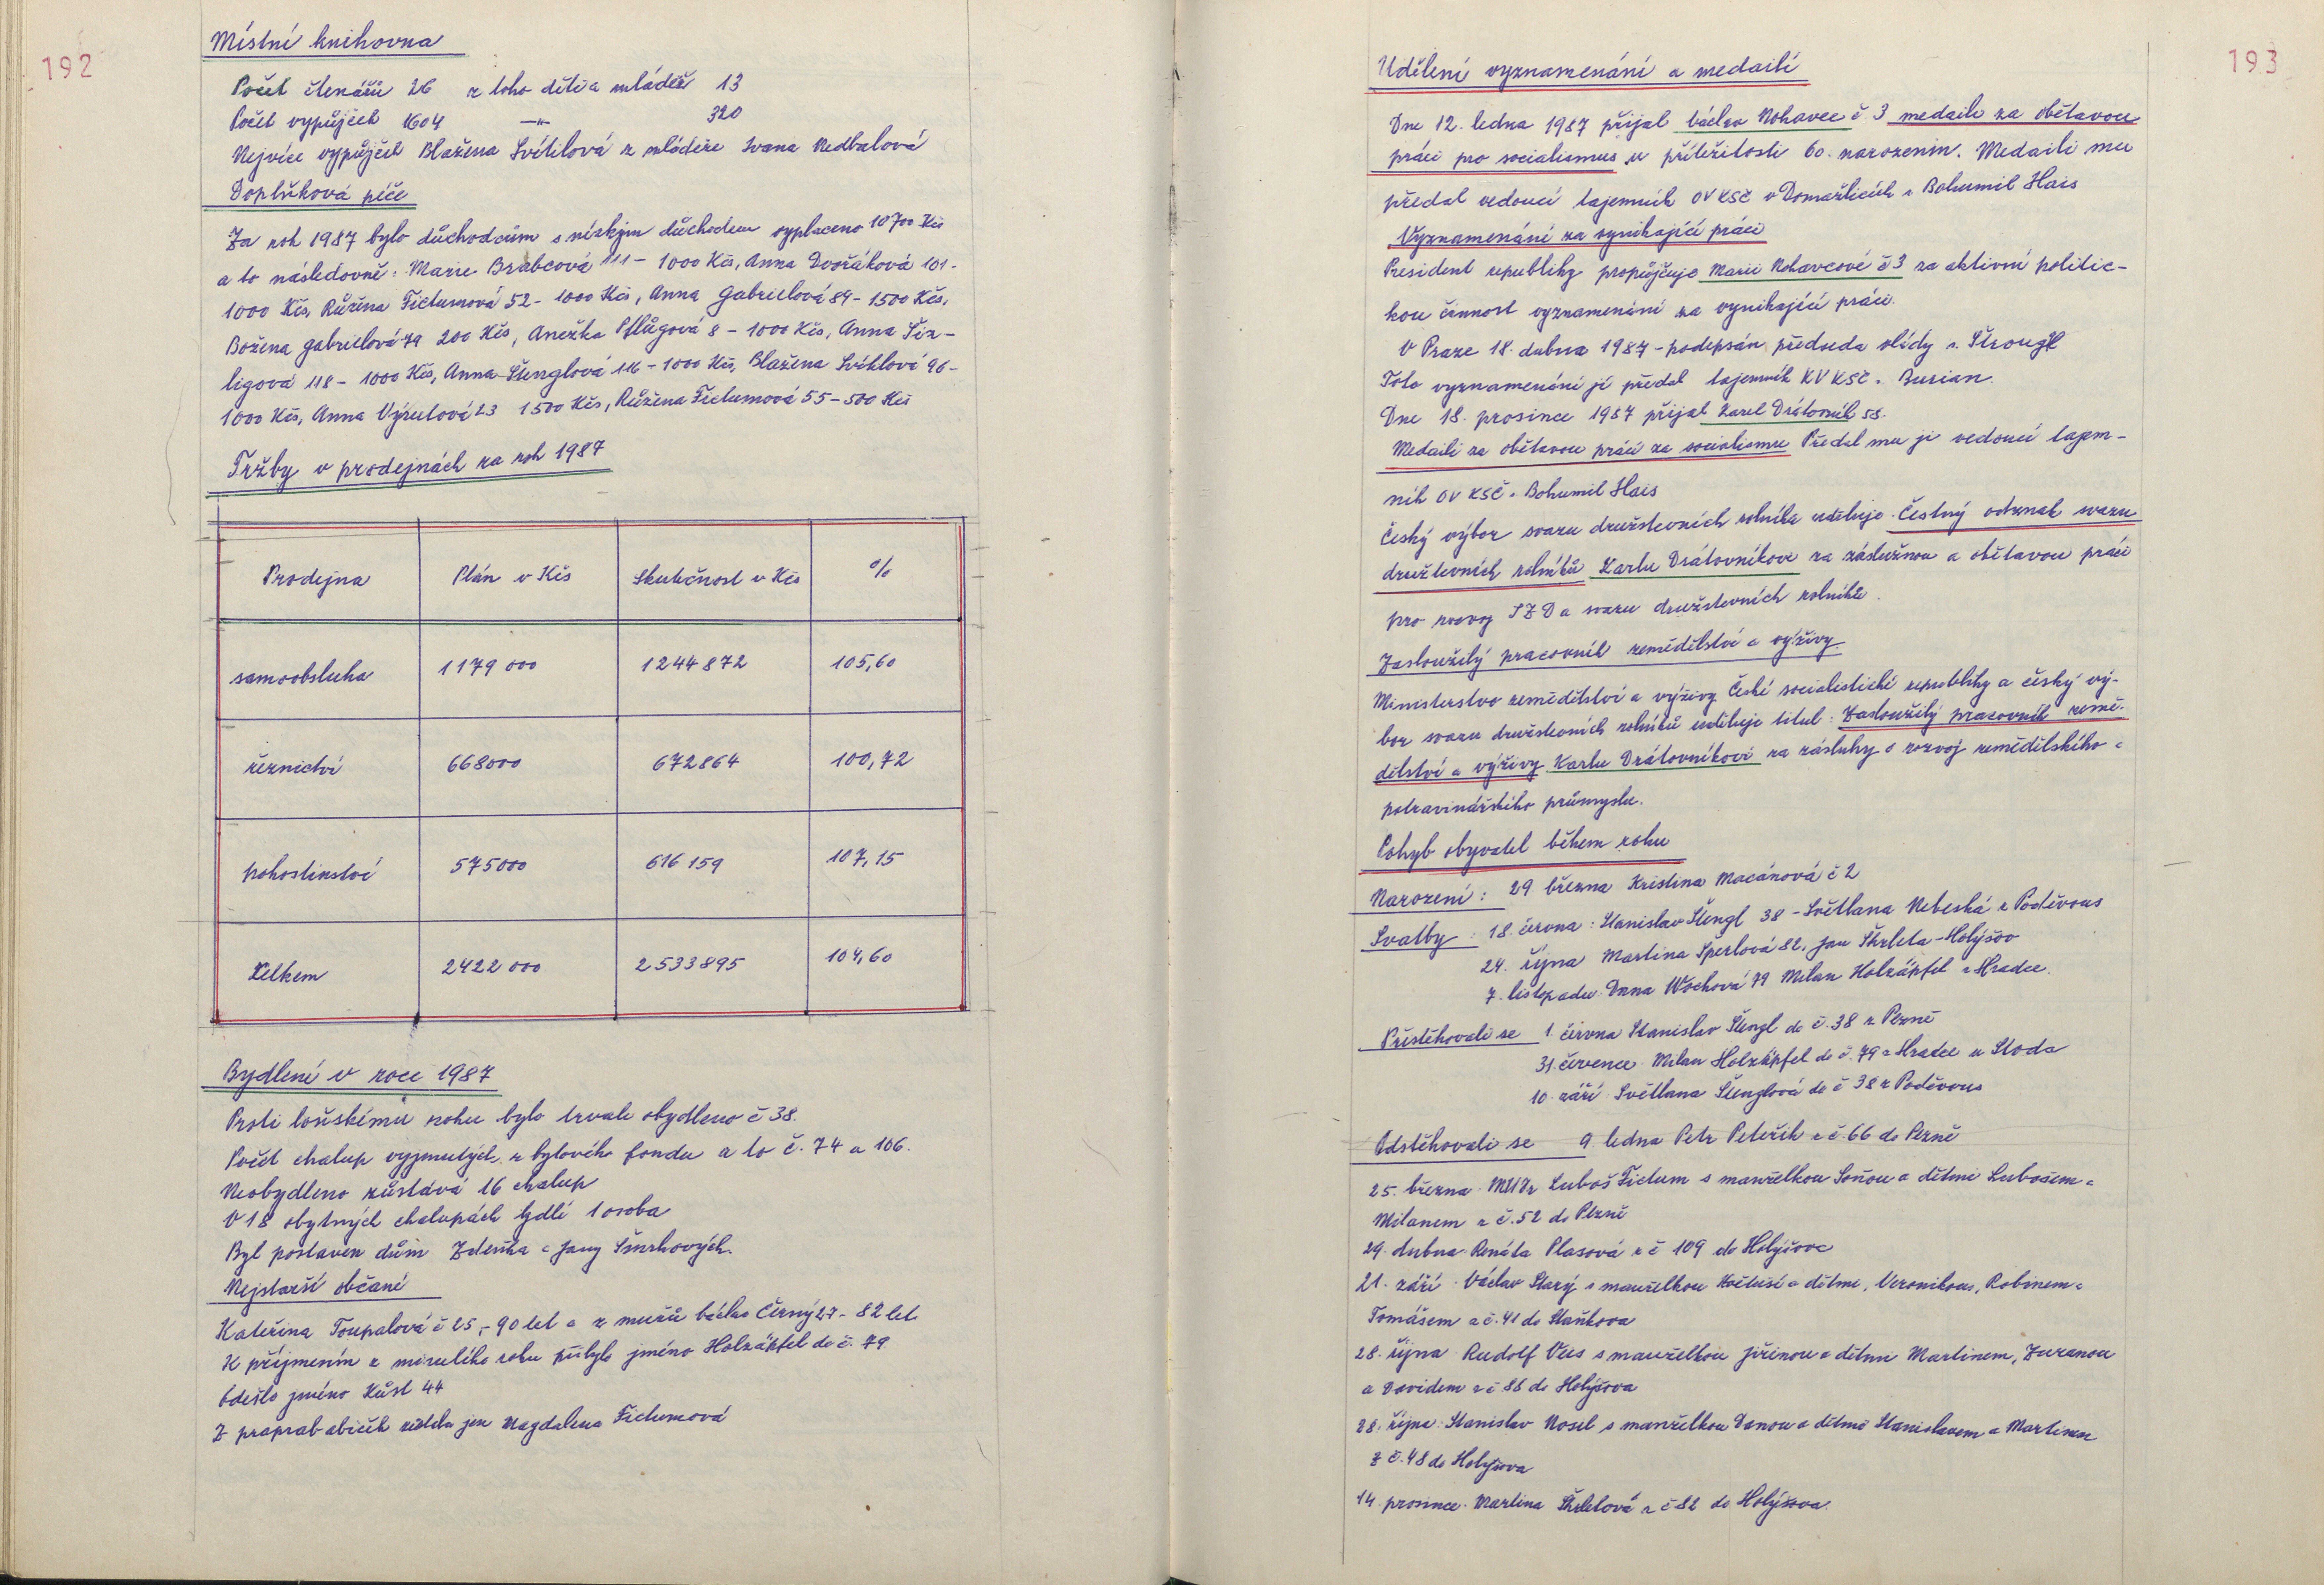 192
Místní knihovna
Počet čtenářů 26 z toho dětí a mládež 13
Počet vypůjček 1604 —"— 320
Nejvíce vypůjček Blažena Svítilová z mládeže Ivana Nedbalová
Doplňková péče
Za rok 1987 bylo důchodcům s nízkým důchodem vyplaceno 10700 Kčs
a to následovně: Marie Brabcová 111 – 1000 Kčs, Anna Dvořáková 101 -
1000 Kčs, Růžena Fictumová 52 – 1000 Kčs, Anna Gabrielová 89 – 1500 Kčs,
Božena Gabrielová 79 200 Kčs, Anežka Pflůgová 8 – 1000 Kčs, Anna Šiz-
ligová 118 – 1000 Kčs, Anna Štenglová 116 – 1000 Kčs, Blažena Svíhlová 96 –
1000 Kčs, Anna Výrutová 23 1500 Kčs, Růžena Fictumová 55 – 500 Kčs
Tržby v prodejnách za rok 1987
Prodejna Plán v Kčs Skutečnost v Kčs %
samoobsluha 1179 000 1244 872 105,60
řeznictví 668000 672864 100,72
pohostinství 575000 616 159 107,15
Celkem 2422 000 2533895 104,60
Bydlení v roce 1987
Proti loňskému roku bylo trvale obydleno č 38.
Počet chalup vyjmutých z bytového fondu a to č. 74 a 106.
Neobydleno zůstává 16 chalup
V 18 obytných chalupách bydlí 1 osoba
Byl postaven dům Zdeňka a Jany Šmrhových.
Nejstarší občané
Kateřina Toupalová č 25,- 90 let a z mužů Václav Černý 27 - 82 let.
K příjmením z minulého roku přibylo jméno Holzäpfel do č. 79.
Odešlo jméno Kůst 44
Z praprababiček zůstala jen Magdalena Fictumová
193
Udělení vyznamenání a medailí
Dne 12. ledna 1987 přijal Václav Nohavec č 3 medaili za obětavou
práci pro socialismus u příležitosti 60. narozenin. Medaili mu
předal vedoucí tajemník OV KSČ v Domažlicích s. Bohumil Hais
Vyznamenání za vynikající práci
President republiky propůjčuje Marii Nohavcové č 3 za aktivní politic-
kou činnost vyznamenání za vynikající práci.
V Praze 18. dubna 1987 – podepsán předseda vlády s. Štrougl
Toto vyznamenání jí předal tajemník KV KSČ s. Burian.
Dne 18. prosince 1987 přijal Karel Drátovník 58.
Medaili za obětavou práci za socialismu Předal mu ji vedoucí tajem-
ník OV KSČ s. Bohumil Hais
Český výbor svazu družstevních rolníků uděluje Čestný odznak svazu
družtevních rolníků Karlu Drátovníkovi za záslužnou a obětavou práci
pro rozvoj JZD a svazu družstevních rolníků.
Zasloužilý pracovník zemědělství a výživy
Ministerstvo zemědělství a výživy České socialistické republiky a český vý-
bor svazu družstevních rolníků uděluje titul: Zasloužilý pracovník země-
dělství a výživy Karlu Drátovníkovi za zásluhy o rozvoj zemědělského a
potravinářského průmyslu.
Pohyb obyvatel během roku
Narození: 29 března Kristina Macánová č 2
Svatby: 18. června: Stanislav Štengl 38 – Světlana Nebeská z Poděvous
24. října Martina Šperlová 82, Jan Škrleta – Holýšov
7. listopadu Dana Wochová 79 Milan Holzäpfel z Hradce.
Přistěhovali se 1. června Stanislav Štengl do č. 38 z Plzně
31. července Milan Holzäpfel do č. 79 z Hradce u Stoda
10. září Světlana Štenglová do č 38 z Poděvous
Odstěhovali se 9 ledna Petr Peteřík z č. 66 do Plzně
25. března MUDr Luboš Fictum s manželkou Soňou a dětmi Lubošem a
Milanem z č. 52 do Plzně
29. dubna Renáta Plasová z č 109 do Holýšova
21. září Václav Starý s manželkou a dětmi, Veronikou, Robinem a
Tomášem z č. 41 do Staňkova
28. října Rudolf Vees s manželkou Jiřinou a dětmi Martinem, Zuzanou
a Davidem z č 88 do Holýšova
28. října Stanislav Nosel s manželkou Danou a dětmi Stanislavem a Martinem
z č. 48 do Holýšova
14. prosince Martina Škrletová z č 82 do Holýšova.